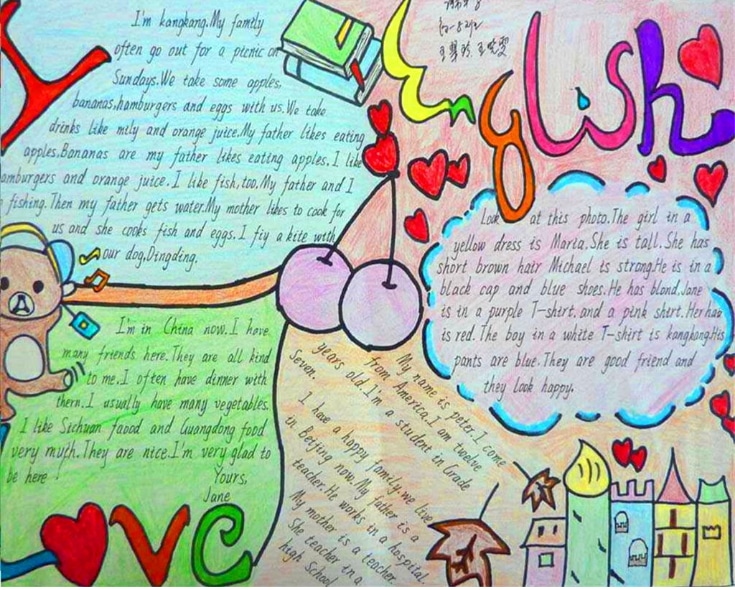 I'm kangkang.My family
often go out for a picnic on
Sundays.We take some apples,
bananas,hamburgers and eggs with us.We take
drinks like mily and orange juice.My father likes eating
apples.Bananas are my father likes eating apples.I like
amburgers and orange juice.I like fish,too.My father and I
fishing.Then my father gets water.My mother likes to cook for
us and she cooks fish and eggs.I fiy a kite with
our dog,Dingding.
English
Look at this photo.The girl in a
yellow dress is Maria.She is tall.She has
short brown hair Michael is strong.He is in a
black cap and blue shoes.He has blond.Jane
is in a purple T-shirt.and a pink shirt.Her hair
is red.The boy in a white T-shirt is kangkang.His
pants are blue.They are good friend and
they look happy.
I'm in China now.I have
many friends here.They are all kind
to me.I often have dinner with
them.I usually have many vegetables.
I like Sichuan faood and Guangdong food
very myth.They are nice.I'm very glad to
be here!
Yours,
Jane
My name is peter.I come
from America.I am twelve
years old.I'm a student in Grade
Seven.
I have a happy family.we live
in Beijing now.My father is a
teacher.He works in a hospital.
My mother is a teacher.
She teacher in a
high School
VC